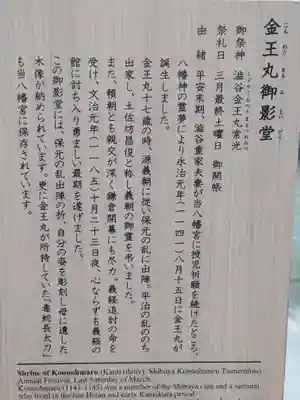 金王丸御影堂
こんのうまるみえいどう
御祭神　渋谷金王丸常光
しぶやこんのうまるつねみつ
祭礼日　三月最終土曜日　御開帳
由緒　平安末期、渋谷重家夫妻が当八幡宮に授児祈願を続けたところ、
八幡神の霊夢により永治元年（一一四一）八月十五日に金王丸が
誕生しました。
金王丸十七歳の時、源義朝に従い保元の乱に出陣。平治の乱ののち
出家し、土佐坊昌俊と称し義朝の御霊を弔いました。
また、頼朝とも親交が深く鎌倉開幕にも尽力。義経追討の命を
受け、文治元年（一一八五）十月二十三日夜、心ならずも義経の
館に討ち入り勇ましい最期を遂げました。
この御影堂には、保元の乱出陣の折、自分の姿を彫刻し母に遺した
木像が納められています。更に金王丸が所持していた「毒蛇長太刀」
も当八幡宮に保存されています。
Shrine of Konnohmaro (Kami (deity): Shibuya Konnohmaro Tsunemitsu)
Annual Festival: Last Saturday of March
Konnohmaro (1141-1185) was a member of the Shibuya clan and a samurai
who lived in the late Heian and early Kamakura period.